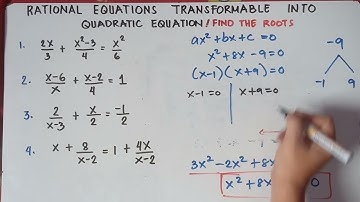 RATIONAL EQUATIONS TRANSFORMABLE INTO
QUADRATIC EQUATION / FIND THE ROOTS
1. 2x/3 + x²-3/4 = x²/6
2. x-6/x + x-2/4 = 1
3. 2/x-3 + x/2 = -1/2
4. x + 8/x-2 = 1 + 4x/x-2
ax² + bx + c = 0
x² + 8x - 9 = 0
(x-1)(x+9) = 0
x-1=0 x+9=0
-9
-1 9
3x² - 2x² + 8x
x² + 8x 0